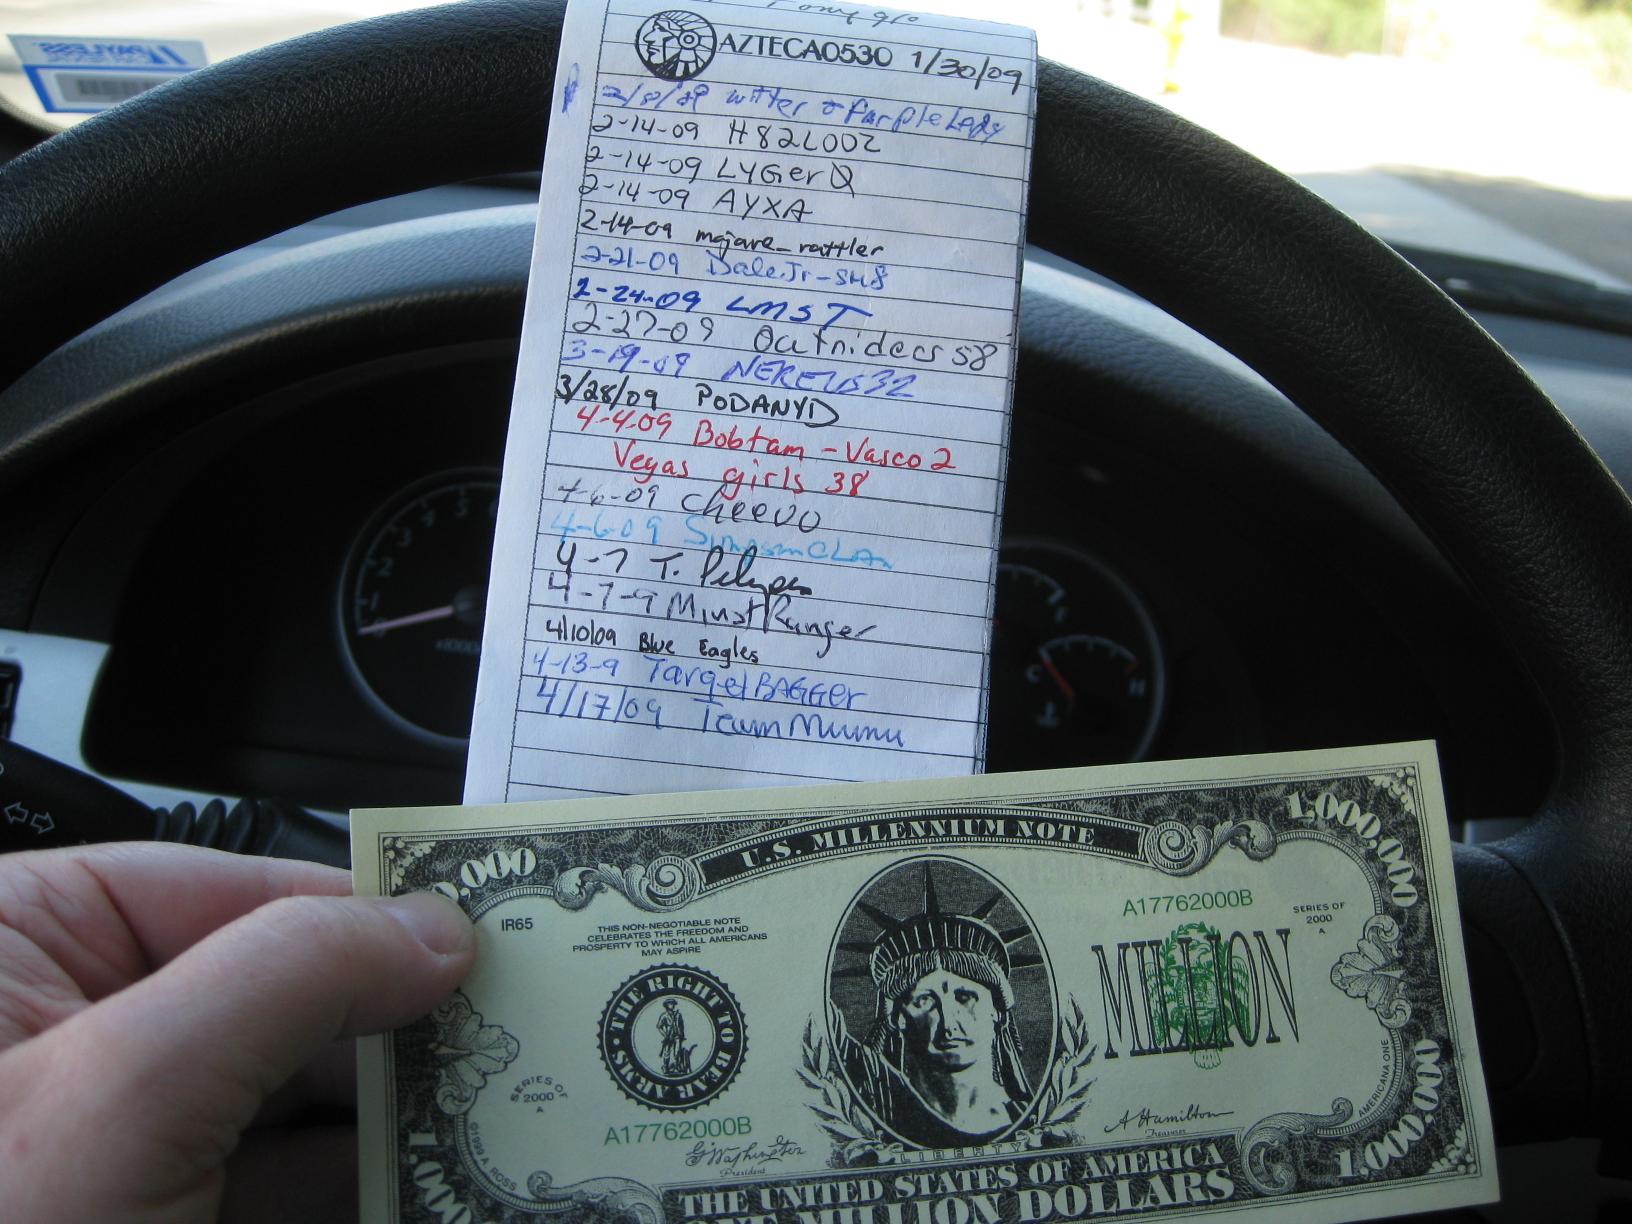 AZTECA0530 1/30/09
witter + PurpleLady
2-14-09 H82LOOZ
2-14-09 LYGerQ
2-14-09 AYXA
2-14-09 mojave_rattler
2-21-09 DaleJr-SH8
2-24-09 LMST
2-27-09 Outriders58
3-19-09 NEREUS32
3/28/09 PODANYD
4-4-09 Bobtam - Vasco 2
Vegas girls 38
4-6-09 Cheevo
4-6-09 SimpsonCLan
4-7 T.
4-7-9 Ranger
4/10/09 Blue Eagles
4-13-9 TargetBAGGer
4/17/09 TeamMumu
U.S. MILLENNIUM NOTE
0,000
1,000,000
IR65
THIS NON-NEGOTIABLE NOTE
CELEBRATES THE FREEDOM AND
PROSPERITY TO WHICH ALL AMERICANS
MAY ASPIRE
A17762000B
SERIES OF
2000
A
THE RIGHT TO BEAR ARMS
MILLION
SERIES OF
2000
A
A17762000B
G Washington
President
A Hamilton
Treasurer
AMERICANA ONE
©1999 A. ROSS
LIBERTY
1,000,000
THE UNITED STATES OF AMERICA
ONE MILLION DOLLARS
C H